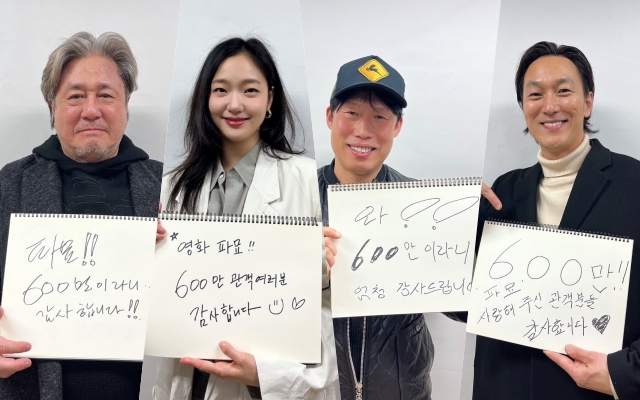 파묘!!
600만이라니..
감사합니다!!
*영화 파묘!!
600만 관객여러분
감사합니다
와 ??
600만 이라니
엄청 감사드립니다
600만!!
파묘
사랑해 주신 관객분들
감사합니다